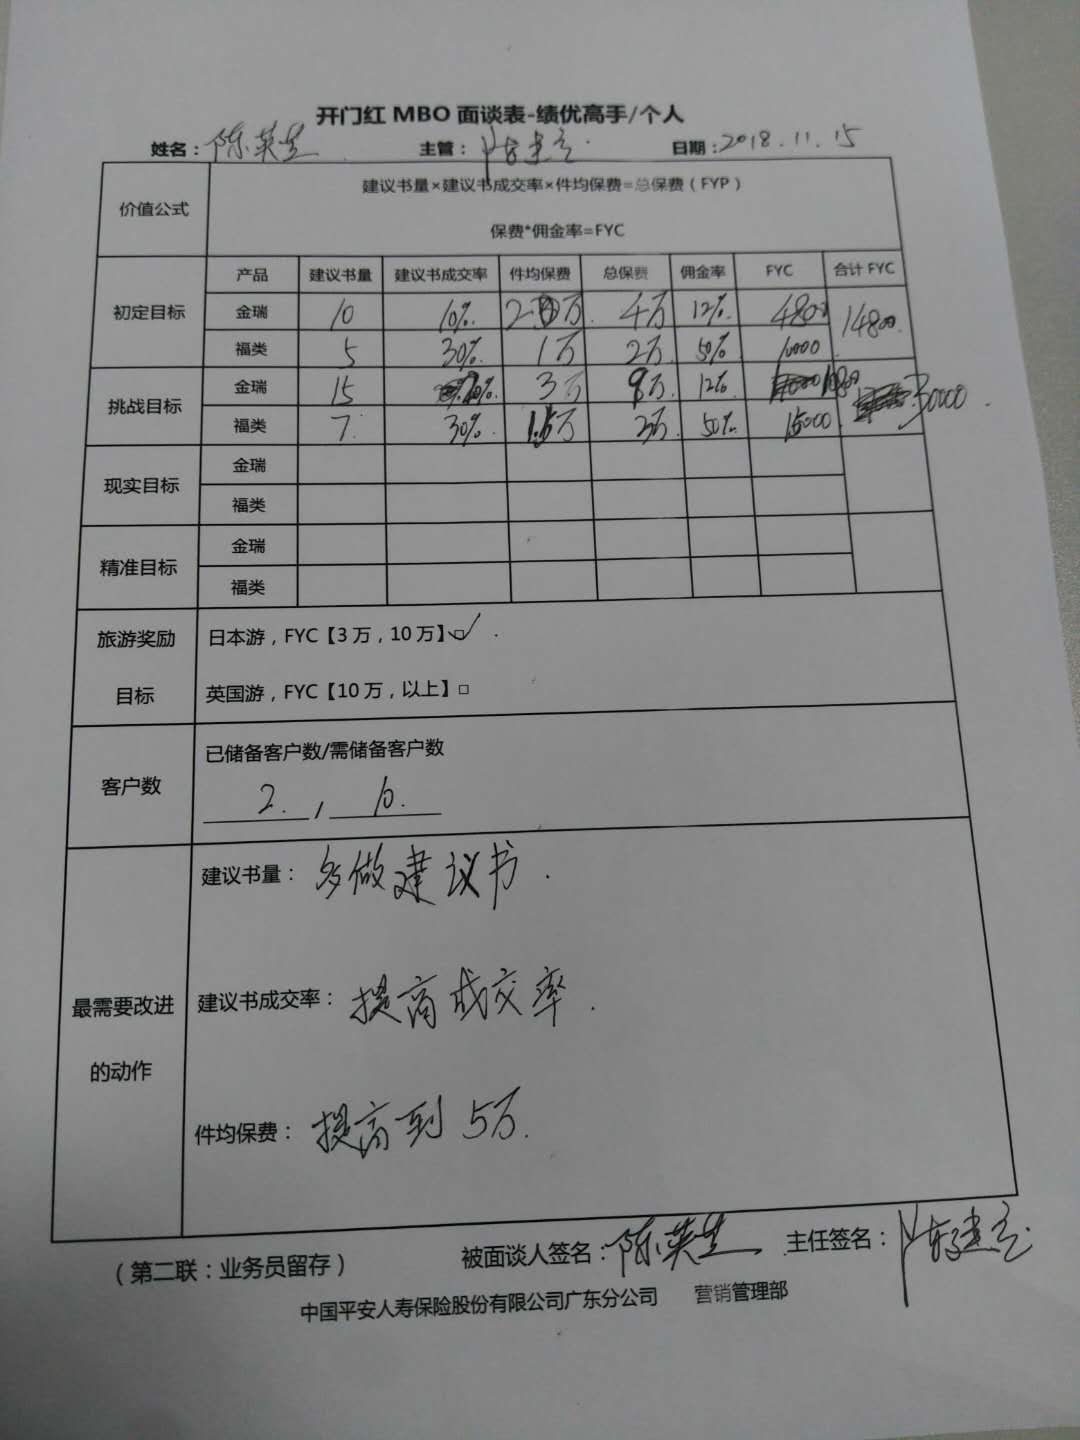 开门红 MBO 面谈表-绩优高手/个人
姓名：陈英生 主管： 日期：2018.11.15
价值公式
建议书量×建议书成交率×件均保费=总保费（FYP）
保费*佣金率=FYC
产品 建议书量 建议书成交率 件均保费 总保费 佣金率 FYC 合计 FYC
初定目标
金瑞 10 10% 4万 12% 4800 14800
福类 5 30% 1万 2万 50% 10000
挑战目标
金瑞 15 3万 12% 30000
福类 7 30% 1.5万 3万 50% 15000
现实目标
金瑞
福类
精准目标
金瑞
福类
旅游奖励
目标
日本游，FYC【3 万，10 万】□✓
英国游，FYC【10 万，以上】□
客户数
已储备客户数/需储备客户数
2. / 10.
最需要改进
的动作
建议书量：多做建议书.
建议书成交率：提高成交率.
件均保费：提高到5万.
被面谈人签名：陈英生 主任签名：
（第二联：业务员留存）
中国平安人寿保险股份有限公司广东分公司 营销管理部